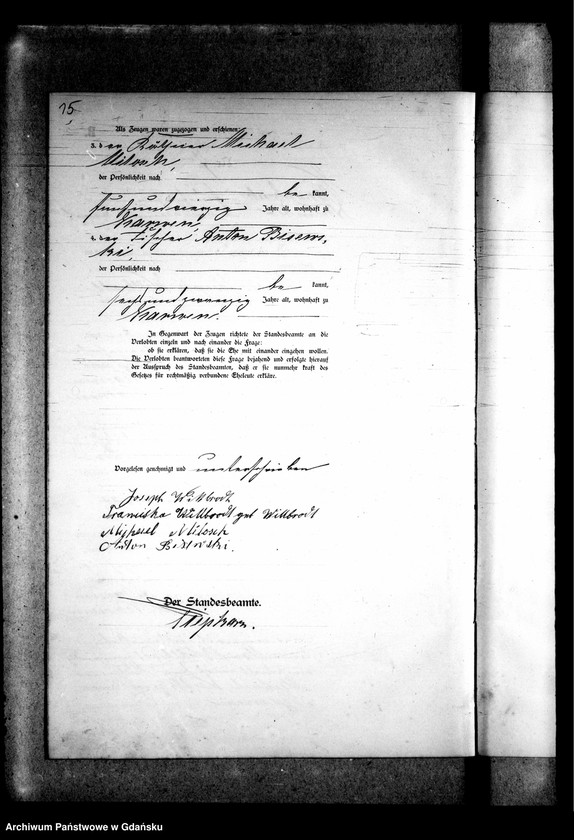 15
Als Zeugen waren zugezogen und erschienen:
3. der Michael
der Persönlichkeit nach
be kannt,
fünfundvierzig Jahre alt, wohnhaft zu
Karwen,
4. der Fischer Anton
der Persönlichkeit nach
be kannt,
sechsundzwanzig Jahre alt, wohnhaft zu
Karwen.
In Gegenwart der Zeugen richtete der Standesbeamte an die
Verlobten einzeln und nach einander die Frage:
ob sie erklären, daß sie die Ehe mit einander eingehen wollen.
Die Verlobten beantworteten diese Frage bejahend und erfolgte hierauf
der Ausspruch des Standesbeamten, daß er sie nunmehr kraft des
Gesetzes für rechtmäßig verbundene Eheleute erkläre.
Vorgelesen genehmigt und unterschrieben
Joseph Willbrodt
Franziska Willbrodt geb Willbrodt
Anton
Der Standesbeamte.
Archiwum Państwowe w Gdańsku